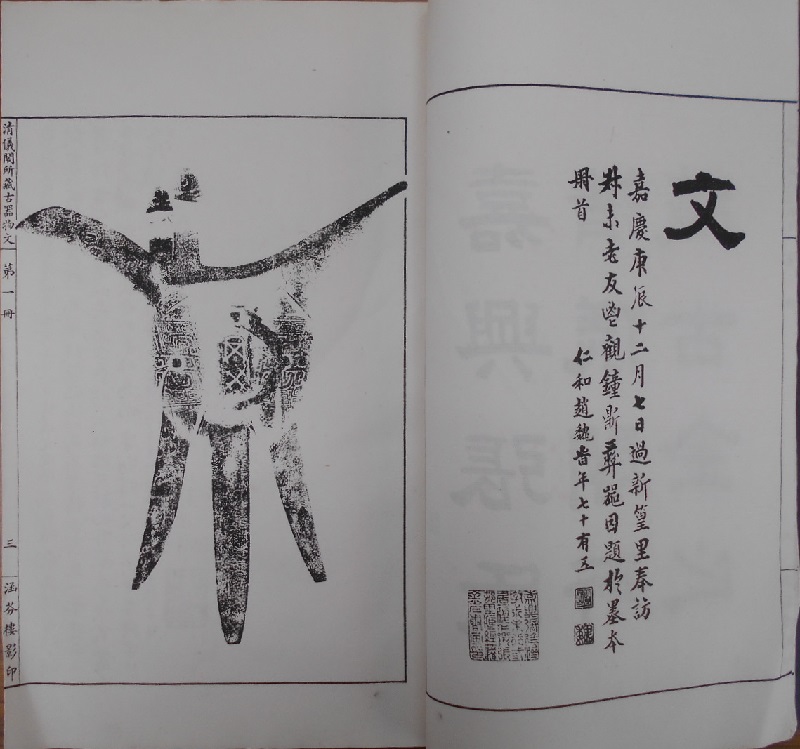 文
嘉慶庚辰十二月七日過新篁里奉訪
叔未老友啚觀鐘鼎彝器因題於墨本
冊首
仁和趙魏當年七十有五
清儀閣所藏古器物文
第一冊
三
涵芬樓影印